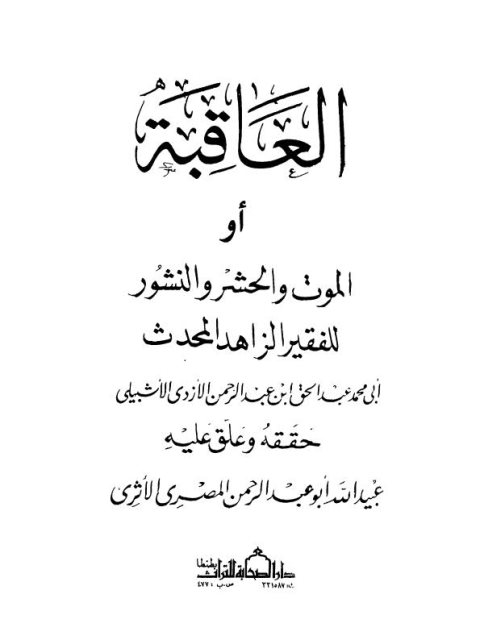 العَاقِبَةُ
أو
الموت والحشر والنشور
للفقير الزاهد المحدث
أبى محمد عبد الحق ابن عبد الرحمن الأزدى الأشبيلى
حَقَقهُ وعَلّق عَليْهِ
عبيد الله أبو عبد الرحمن المصرى الأثرى
دار الصحابة للتراث بطنطا
ت: ٣٣١٥٨٧ ص.ب: ٤٧٧